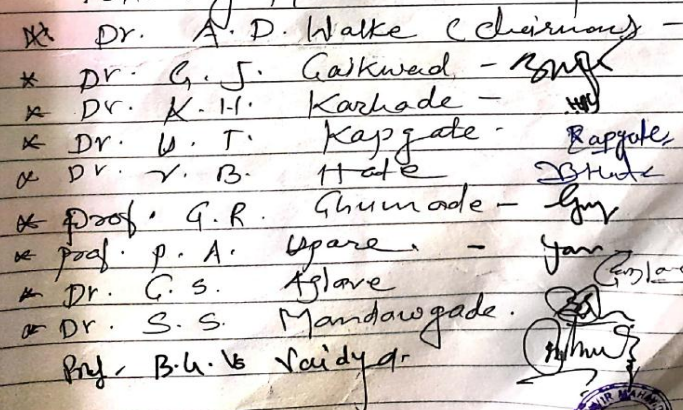 Dr. A. D. Walke (Chairman) -
* Dr. G. J. Gaikwad -
* Dr. K. H. Karhade -
* Dr. U. T. Kapgate - Kapgate
Dr. V. B. Hate
* Prof. G. R. Ghumade -
* Prof. P. A. Upare. -
* Dr. G. S. Aglave
* Dr. S. S. Mandawgade.
Prof. Vaidya